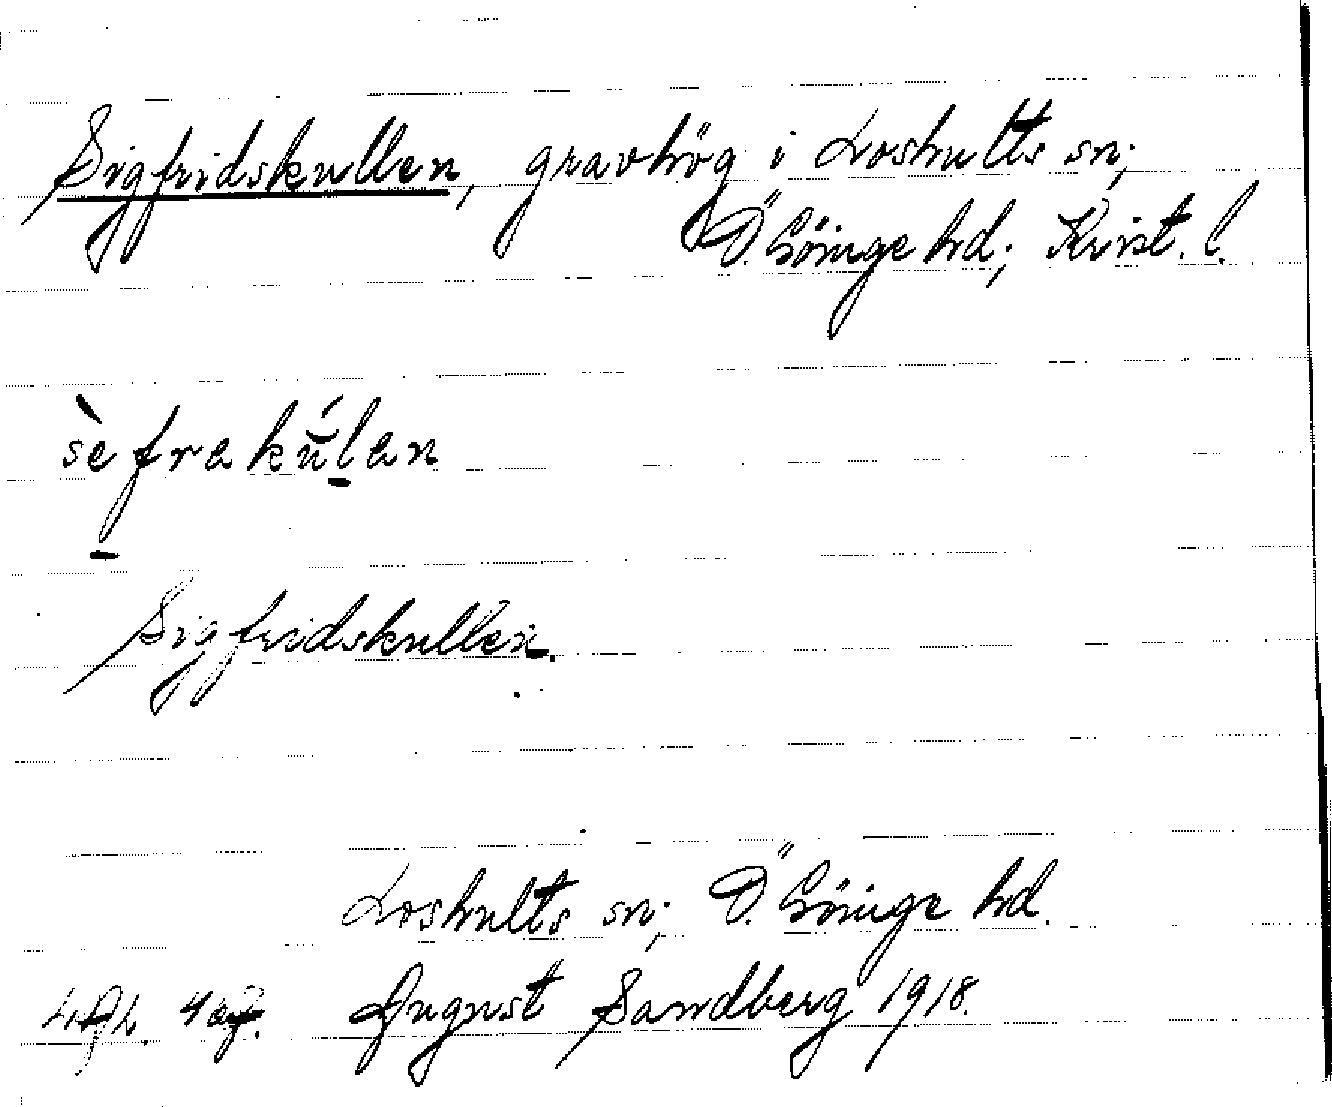 Sigfridskullen, gravhög i Loshults sn;
Ö. Göinge hd; Krist. l.
sèfrakúlan
Sigfridskullen.
Loshults sn; Ö. Göinge hd.
August Sandberg 1918.